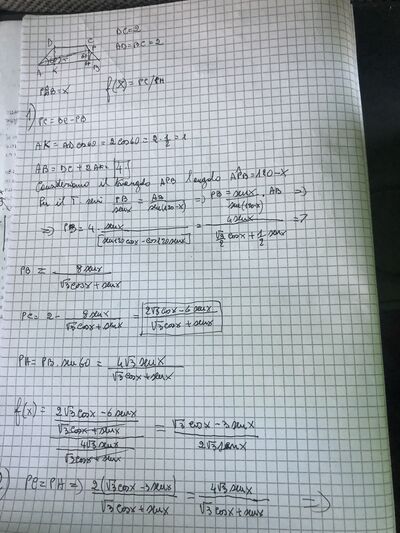 DC=2
AD=BC=2
D C
P
A K H B
PÂB=X f(x)=PC/PH
1)
PC=BC-PB
AK=AD cos60=2cos60=2·1/2=1
AB=DC+2AK=4
Consideriamo il triangolo APB l'angolo APB=120-X
Per il T. seni PB/senx = AB/sen(120-x) => PB = senx/sen(120-x) · AB =>
=> PB=4· senx/[sen120cosx-cos120senx] = 4senx/(√3/2 cosx + 1/2 senx) =>
PB = 8senx/(√3cosx+senx)
PC=2- 8senx/(√3cosx+senx) = (2√3cosx-6senx)/(√3cosx+senx)
PH=PB·sen60= 4√3senx/(√3cosx+senx)
f(x)= ((2√3cosx-6senx)/(√3cosx+senx))/(4√3senx/(√3cosx+senx)) = (√3cosx-3senx)/(2√3senx)
PC=PH => 2(√3cosx-3senx)/(√3cosx+senx) = 4√3senx/(√3cosx+senx) =>